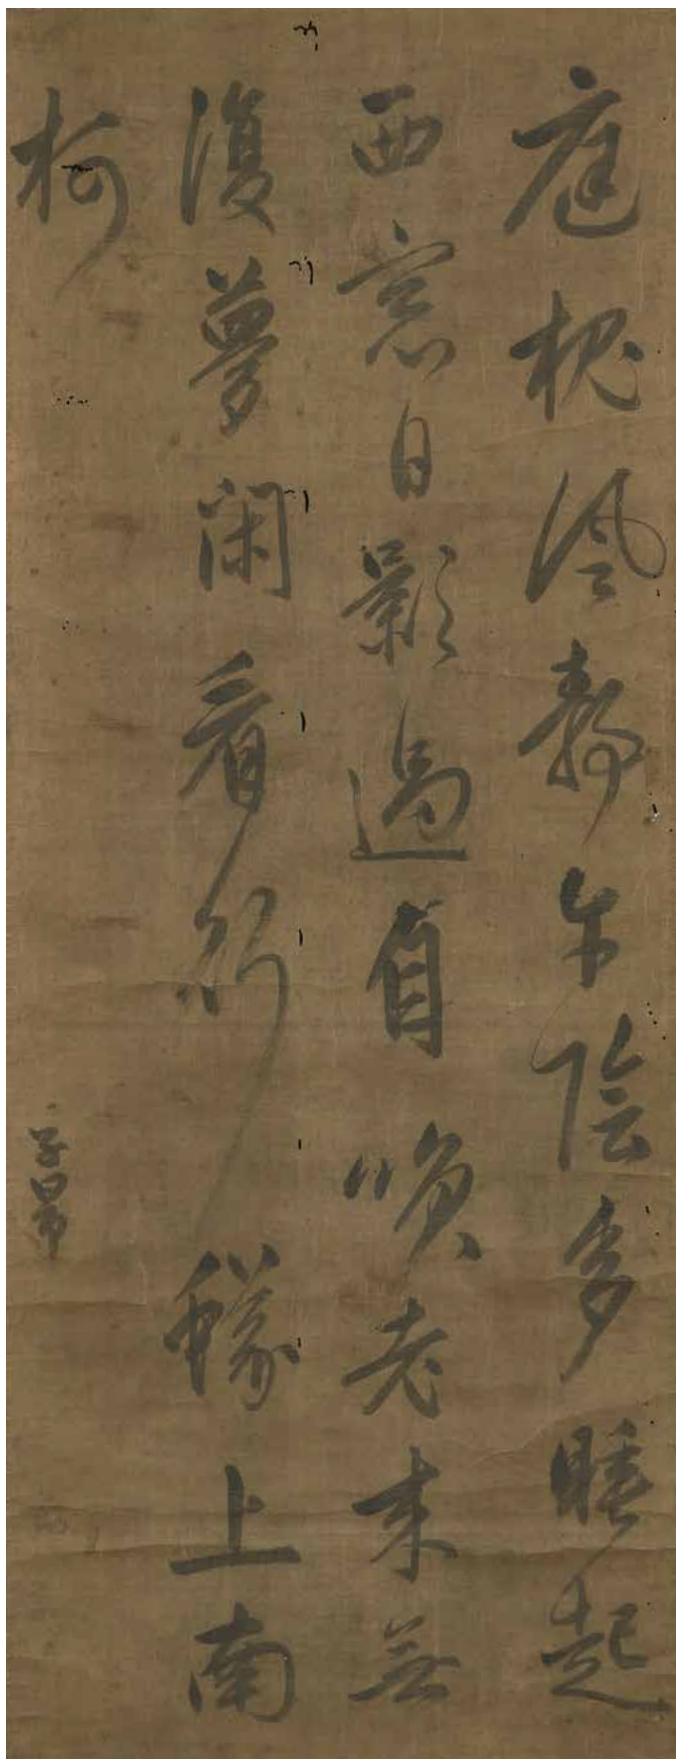 庭槐風靜午陰多睡起
西窓日影過自嘆老來無
復夢閑看行蟻上南
柯
子昂